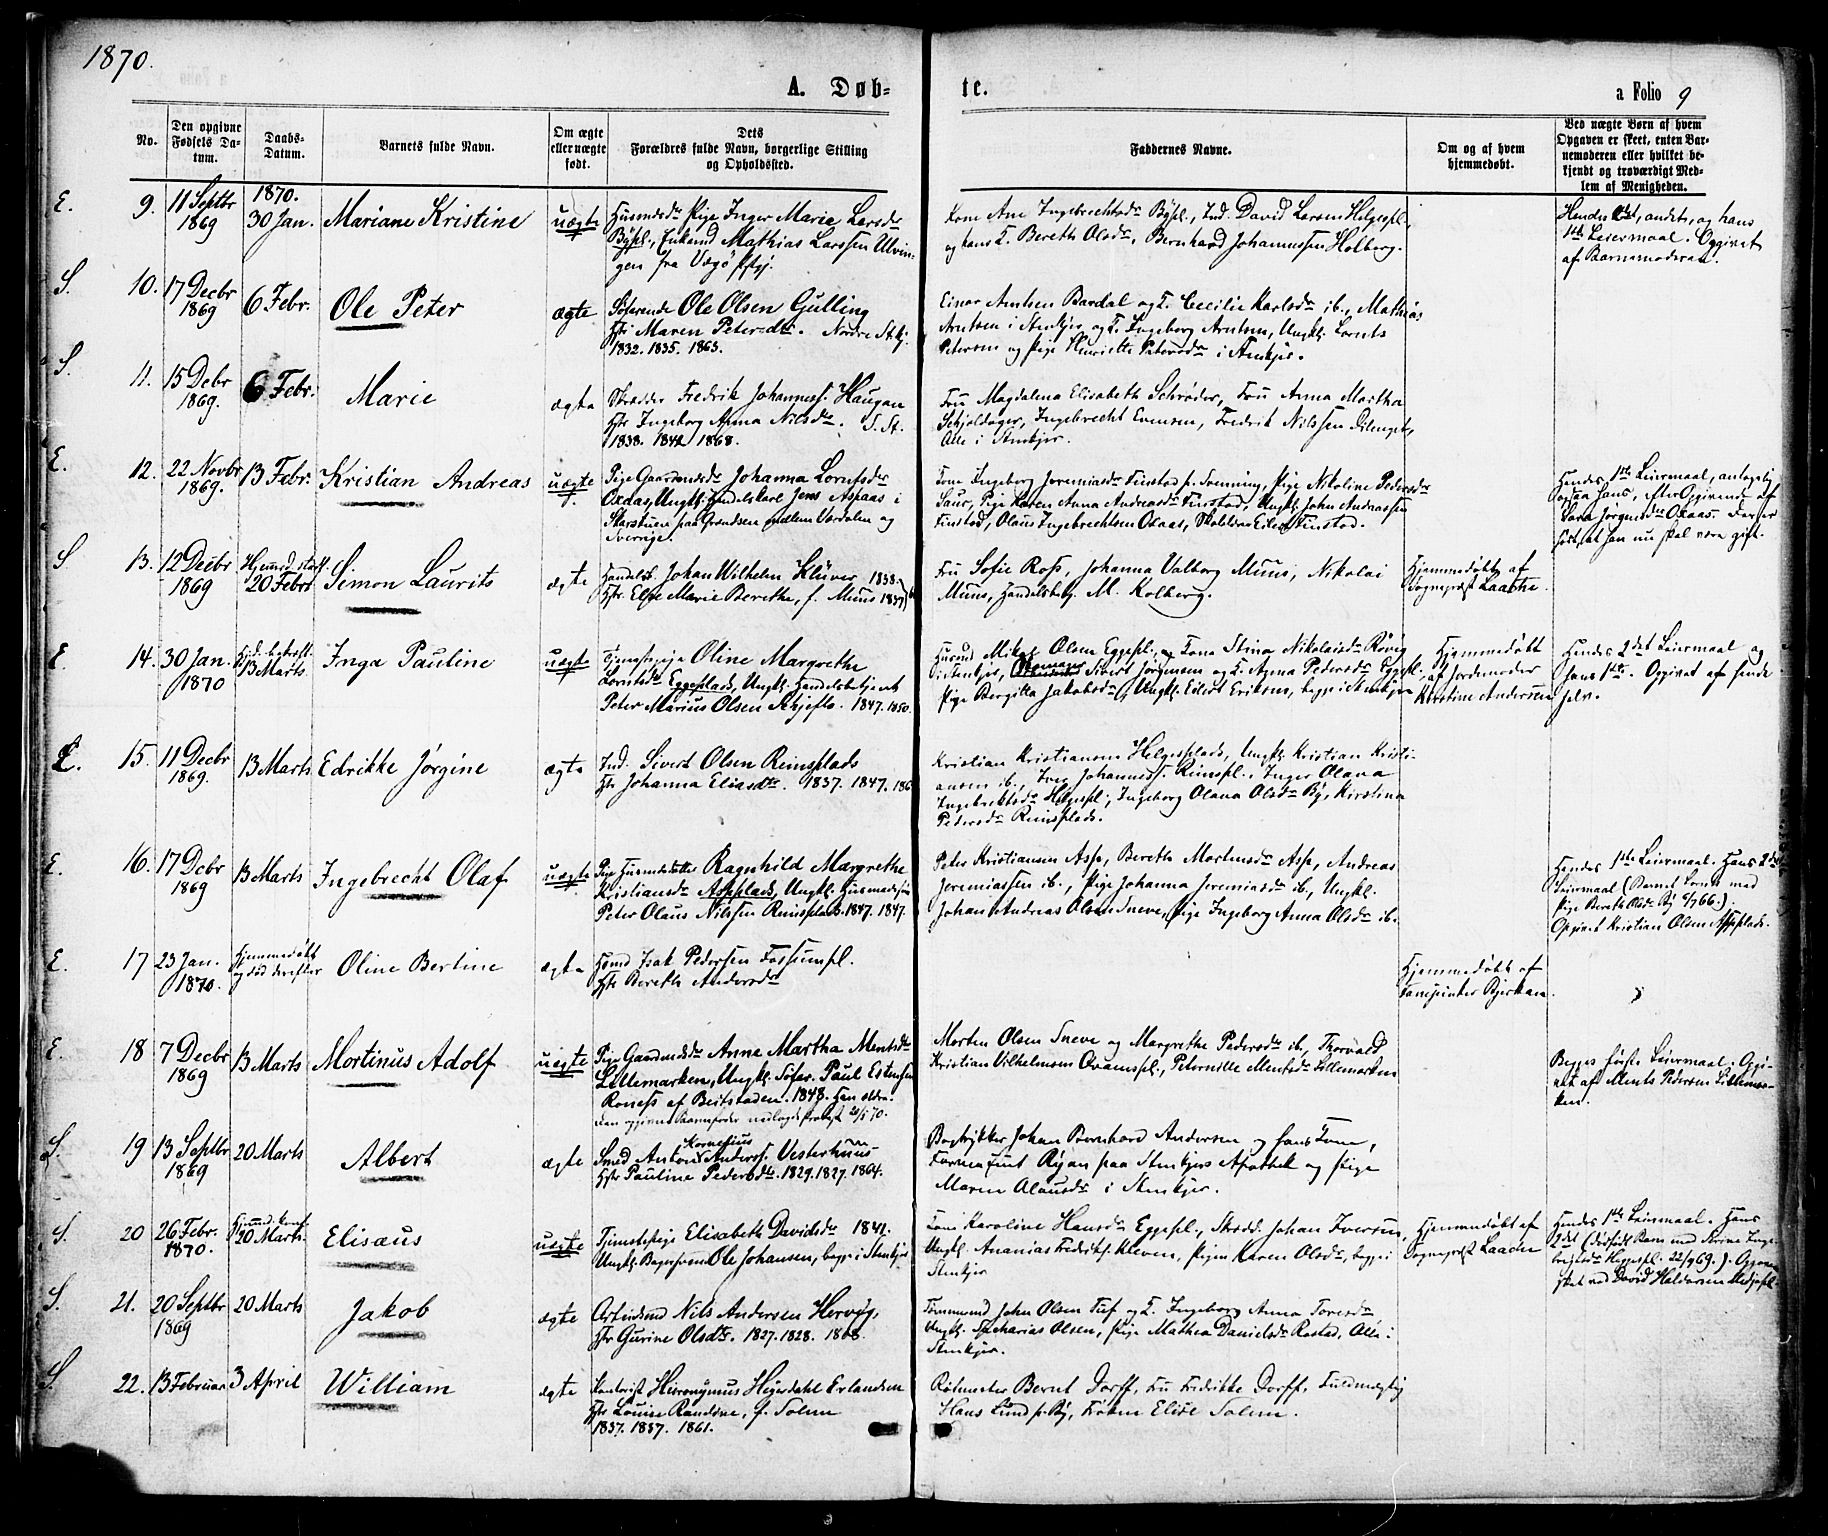 1870.
A. Døb-
te.
a Folio 9
No.
Den opgivne
Fødsels Da-
tum.
Daabs-
Datum.
Barnets fulde Navn.
Om ægte
eller uægte
født.
Dets
Forældres fulde Navn, borgerlige Stilling
og Opholdssted.
Faddernes Navne.
Om og af hvem
hjemmedøbt.
Ved uægte Børn af hvem
Opgaven er skeet, enten Bar-
nemoderen eller hvilket be-
kjendt og troværdigt Med-
lem af Menigheden.
E. 9. 11 Septbr 1869
1870.
30 Jan.
Mariane Kristine
uægte
Husmdsdr Pige Inger Marie Larsdr
Bypl., Enkemd Mathias Larssen Ulvin-
gen fra Vægø
Kone Ane Ingebrechtsdr Bypl., Ind. David Larsen Helgespl.,
og hans K. Bereth Olsdr, Bernhard Johannessen Holberg.
Hendes andet, og hans
1ste Leiermaal. Opgivet
af Barnemoderen.
S. 10. 17 Decbr 1869
6 Febr.
Ole Peter
ægte
Søfarende Ole Olsen Gulling
Hst. Maren Petersdtr. Nordre Stkj.
1832. 1835. 1863.
Einar Arntsen Bardal og K. Cecilie Karlsdr ib., Mathias
Arntsen i Stenkjer og K. Ingeborg Arntsen, Ungk. Lornts
Petersen og Pige Henriette Petersdr i Stenkjer.
S. 11. 15 Debr 1869.
6 Febr.
Marie
ægte
Skrædder Fredrik Johanness. Haugan
Hstr Ingeborg Anna Nilsdr. S. St.
1838. 1842 1868.
Fru Magdalena Elisabeth Schrøder, Fru Anna Martha
Schjoldager, Ingebrecht Evensen, Fredrik Nilssen Dilenget,
Alle i Stenkjer.
E. 12. 22 Novbr 1869.
13 Febr.
Kristian Andreas
uægte
Pige Gaardmdsdr Johanna Lorntsdr
Oxaas, Ungk. Handelskarl Jens Aspaas i
Skarstuen paa Grændsen mellem Værdalen og
Sverige.
Kone Ingeborg Jeremiasdr Finstad, Pige Nikoline Pedersdr
Saur, Pige Karen Anna Andreasdr Finstad, Ungk. John Andreassen
Finstad, Olaus Ingebrechtsen Oxaas,
Hendes 1ste Leiermaal, antagelig
ogsaa hans, efter Opgivende af
Lars Jørgensdr Oxaas.
at han nu skal være gift.
S 13. 12 Decbr 1869
Hjemmed. stadf.
20 Febr
Simon Laurits
ægte
Handelsb. Johan Wilhelm Klüver 1838.
Hstr. Else Marie Berethe, f. Muus 1837
Fru Sofie Ross, Johanna Valborg Muus, Nikolai
Muus, Handelsbetj. M. Kolberg.
Hjemmedøbt af
Sognepræst Laache.
E. 14. 30 Jan. 1870
Hjd. bekræft.
13 Marts.
Inga Pauline
uægte
Tjenestepige Oline Margrethe
Lorntsdr Eggeplads, Ungk. Handelsbetjent
Peter Marius Olsen Skjefte. 1847. 1850.
Husmd Mikal Olsen Eggepl., og Kone Stina Nikolaisdr Røvig
i Stenkjer, Sivert Jørgensen og K. Anna Pedersdr Eggepl.,
Pige Bergitta Jakobsdr, Ungk. Eilert Eriksen, begge i Stenkjer
Hjemmedøbt
af Jordemoder
Kirstine Andersen
Hendes 2det Leiermaal og
hans 1ste. Opgivet af hende
selv.
E. 15. 11 Decbr 1869.
13 Marts
Edrikke Jørgine
ægte
Ind. Sivert Olsen Reinsplads
Hst Johanna Eliasdtr. 1837. 1847.
Kristian Kristiansen Helgesplads, Ungk. Kristian Kristi-
ansen ib., Iver Johanness. Reinspl., Inger Olava
Ingebrektsdr Helgespl., Ingeborg Olava Olsdr By, Kirstina
Pedersdr Reinsplads.
E. 16. 17 Dcbr 1869
13 Marts
Ingebrecht Olaf
uægte
Pige Husmdsdatter Ragnhild Margrethe
Kristiansdr Aspplads, Ungk. Husmandssøn
Peter Olaus Nilssen Reinsplads. 1847. 1847.
Peter Kristiansen Asp, Bereth Mortensdr Asp, Andreas
Jeremiassen ib., Pige Johanna Jeremiasdr ib., Ungk.
Johan Andreas Olsen Sneve, Pige Ingeborg Anna Olsdr ib.
Hendes 1ste Leiermaal. Hans 2det
Leiermaal (Barnet Lornts med
Pige Bereth Olsdr By 66.).
Opgivet Kristian Olsen Aspplads.
E. 17 23 Jan. 1870.
Hjemmedøbt
og død derefter
Oline Bertine
ægte
Hsmd Isak Pedersen Fossumpl.
Hst Bereth Andersdr
Hjemmedøbt af
Bjerkan.
E. 18 7 Decbr 1869
13 Marts
Mortinus Adolf
uægte
Pige Gaardmdsdr Anne Martha Mentsdr
Lillemarken, Ungk. Søfar. Paul Estensen
Roness af Beitstaden. 1848. Han eldre.
Den opgivne Barnefader
Morten Olsen Sneve og Margrethe Pedersdr ib., Thorvald
Kristian Vilhelmsen Qvamspl., Peternille Mentsdr Lillemarken
Begges første Leiermaal. Opgi-
vet af Ments Pedersen Lillemar-
ken.
S. 19 13 Septbr 1869
20 Marts
Albert
ægte
Smed Anton Kornelius Anderss. Vesterhuus
Hstr Pauline Pedersdtr. 1829. 1827. 1864.
Bogtrykker Johan Bernhard Andersen og hans Kone,
Farmaceut Ryan paa Stenkjers Apothek og Pige
Maren Olausdr i Stenkjer.
S. 20 26 Febr. 1870.
20 Marts.
Elisæus
uægte
Tjenestepige Elisabeth Davidsdr 1842.
Ungk. Bagersvend Ole Johansen, begge i Stenkjer
Kone Karoline Hansdr Eggepl., Skrædd. Johan Iversen,
Ungk. Ananias Fredriks. Kleven, Pigen Karen Olsdr, begge i
Stenkjer
Hjemmedøbt af
Sognepræst Laache
Hendes 1ste Leiermaal. Hans
2det (dødfødt Barn med Inge-
brigtsdr Heggespl. 22/ 69.).
ved David Haldorsen
S. 21. 20 Septbr 1869
20 Marts
Jakob
ægte
Arbeidsmd Nils Andersen Hervig,
Hstr Gurine Olsdtr. 1827. 1828. 1868.
Tømmermd John Olsen Tuf og K. Ingeborg Anna Toresdr
Ungk. Zacharias Olsen, Pige Mathea Danielsdr Rostad, Alle i
Stenkjer.
S. 22. 13 Februar
3 April
William
ægte
Kontorist Hieronymus Heyerdahl Erlandsen
Hstr Louise Randine, f. Solem
1837. 1837. 1861.
Rodmester Bernt Dorff, Fru Fredrikke Dorff, Fuldmægtig
Hans Lund p. By, Frøken Elise Solem.